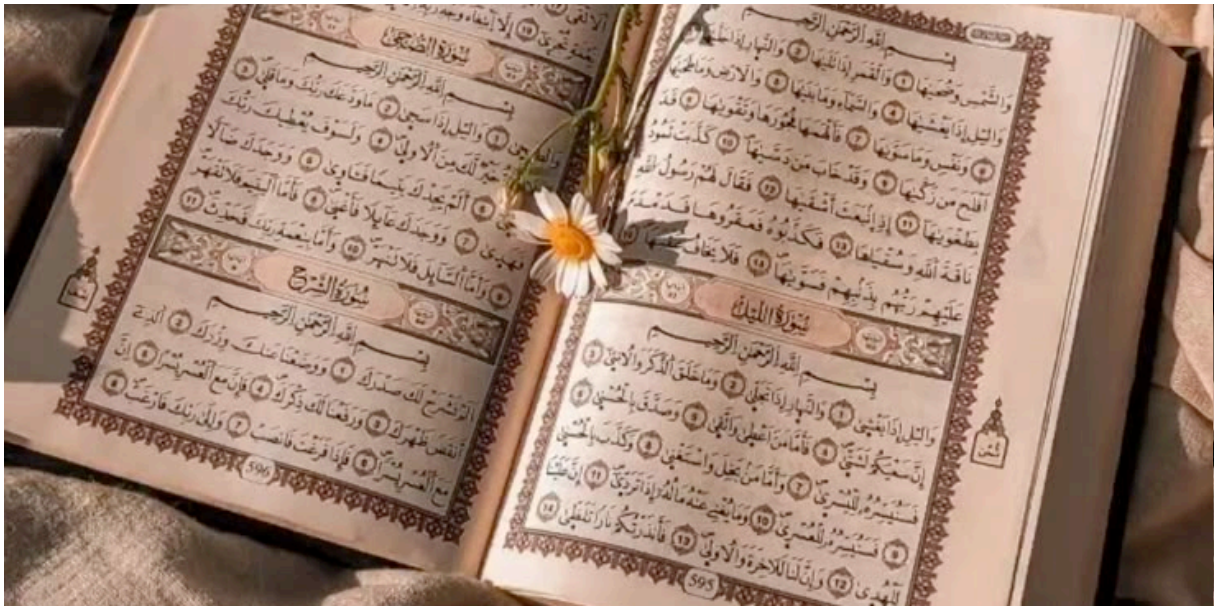 بِسْمِ اللَّهِ الرَّحْمَنِ الرَّحِيمِ
وَالشَّمْسِ وَضُحَيٰهَا ١ وَالْقَمَرِ إِذَا تَلَيٰهَا ٢ وَالنَّهَارِ إِذَا جَلَّيٰهَا
وَالَّيْلِ إِذَا يَغْشَيٰهَا ٤ وَالسَّمَاءِ وَمَا بَنَيٰهَا ٥ وَالَارْضِ وَمَا طَحَيٰهَا
٦ وَنَفْسٍ وَمَا سَوَّيٰهَا ٧ فَأَلْهَمَهَا فُجُورَهَا وَتَقْوَيٰهَا ٨ قَدَ
اَفْلَحَ مَن زَكَّيٰهَا ٩ وَقَدْ خَابَ مَن دَسَّيٰهَا ١٠ كَذَّبَتْ ثَمُودُ
بِطَغْوَيٰهَا ١١ إِذِ اِنۢبَعَثَ أَشْقَيٰهَا ١٢ فَقَالَ لَهُمْ رَسُولُ اللَّهِ
نَاقَةَ اللَّهِ وَسُقْيَٰهَا ١٣ فَكَذَّبُوهُ فَعَقَرُوهَا فَدَمْدَمَ
عَلَيْهِمْ رَبُّهُم بِذَنۢبِهِمْ فَسَوَّيٰهَا ١٤ فَلَا يَخَافُ عُقْبَيٰهَا
سُورَةُ اللَّيْلِ
بِسْمِ اللَّهِ الرَّحْمَنِ الرَّحِيمِ
وَالَّيْلِ إِذَا يَغْشَىٰ ١ وَالنَّهَارِ إِذَا تَجَلَّىٰ ٢ وَمَا خَلَقَ الذَّكَرَ وَالُانثَىٰ ٣
إِنَّ سَعْيَكُمْ لَشَتَّىٰ ٤ فَأَمَّا مَنَ اَعْطَىٰ وَاتَّقَىٰ ٥ وَصَدَّقَ بِالْحُسْنَىٰ ٦
فَسَنُيَسِّرُهُ لِلْيُسْرَىٰ ٧ وَأَمَّا مَنۢ بَخِلَ وَاسْتَغْنَىٰ ٨ وَكَذَّبَ بِالْحُسْنَىٰ
٩ فَسَنُيَسِّرُهُ لِلْعُسْرَىٰ ١٠ وَمَا يُغْنِي عَنْهُ مَالُهُ إِذَا تَرَدَّىٰ ١١ إِنَّ عَلَيْنَا
لَلْهُدَىٰ ١٢ وَإِنَّ لَنَا لَلَاخِرَةَ وَالُاولَىٰ ١٣ فَأَنذَرْتُكُمْ نَارًا تَلَظَّىٰ ١٤
ثُمُن
595
نِّعْمَةٍ تُجْزَىٰ ١٩ إِلَّا اَبْتِغَاءَ وَجْهِ رَبِّهِ
سُورَةُ الضُّحَىٰ
بِسْمِ اللَّهِ الرَّحْمَنِ الرَّحِيمِ
وَالضُّحَىٰ ١ وَالَّيْلِ إِذَا سَجَىٰ ٢ مَا وَدَّعَكَ رَبُّكَ وَمَا قَلَىٰ ٣
خَيْرٌ لَّكَ مِنَ الُاولَىٰ ٤ وَلَسَوْفَ يُعْطِيكَ رَبُّكَ
٥ أَلَمْ يَجِدْكَ يَتِيمًا فَـَٔاوَىٰ ٦ وَوَجَدَكَ ضَالًّا
فَهَدَىٰ ٧ وَوَجَدَكَ عَائِلًا فَأَغْنَىٰ ٨ فَأَمَّا الْيَتِيمَ فَلَا تَقْهَرْ
٩ وَأَمَّا السَّائِلَ فَلَا تَنْهَرْ ١٠ وَأَمَّا بِنِعْمَةِ رَبِّكَ فَحَدِّثْ ١١
سُورَةُ الشَّرْحِ
بِسْمِ اللَّهِ الرَّحْمَنِ الرَّحِيمِ
أَلَمْ نَشْرَحْ لَكَ صَدْرَكَ ١ وَوَضَعْنَا عَنكَ وِزْرَكَ ٢ اَلَّذِي
أَنقَضَ ظَهْرَكَ ٣ وَرَفَعْنَا لَكَ ذِكْرَكَ ٤ فَإِنَّ مَعَ الْعُسْرِ يُسْرًا ٥ اِنَّ
مَعَ الْعُسْرِ يُسْرًا ٦ فَإِذَا فَرَغْتَ فَانصَبْ ٧ وَإِلَىٰ رَبِّكَ فَارْغَب ٨
ثُمُن
596